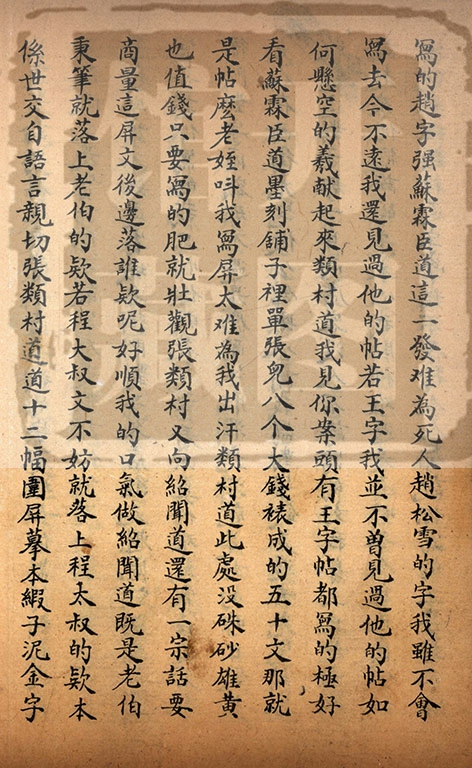 寫的趙字强蘇霖臣道這一發难為死人趙松雪的字我雖不會
寫去今不遠我還見過他的帖若王字我並不曽見過他的帖如
何懸空的羲献起來類村道我見你案頭有王字帖都寫的極好
看蘇霖臣道墨刻舖子裡單張兒八个大錢裱成的五十文那就
是帖麽老姪呌我寫屏太难為我出汗類村道此處没硃砂雄黄
也值錢只要寫的肥就壯觀張類村又向紹聞道還有一宗話要
商量這屏文後邊落誰欵呢好順我的口氣做紹聞道既是老伯
秉筆就落上老伯的欵若程大叔文不妨就落上程太叔的欵本
係世交自語言親切張類村道道十二幅圍屏摹本緞子泥金字